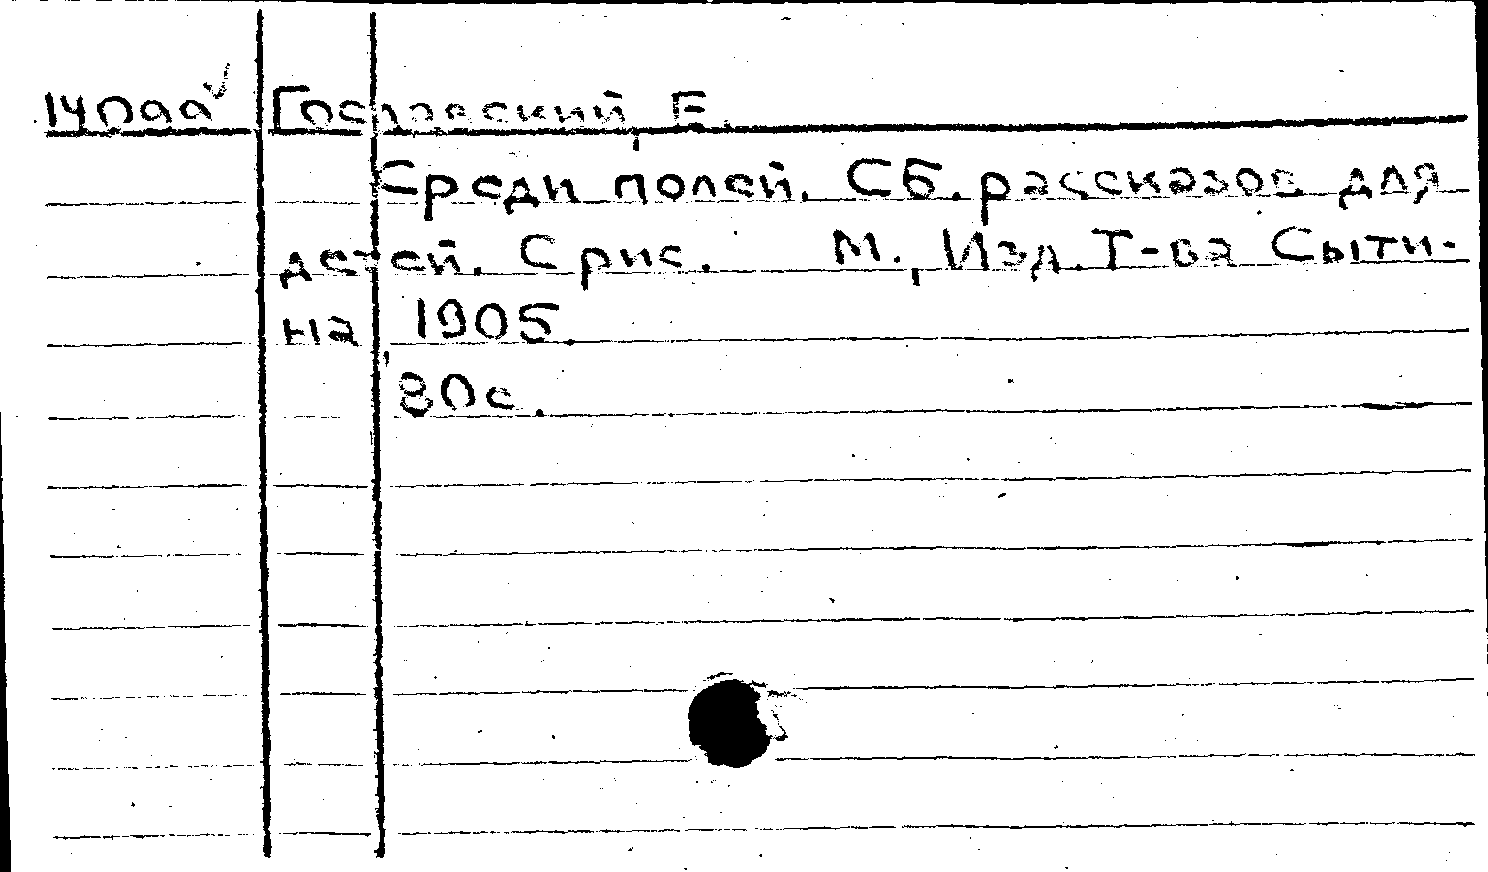 Гославский, Е.
Среди полей. Сб. рассказов для
детей. С рис. М., Изд. Т-ва Сыти-
на, 1905.
80с.